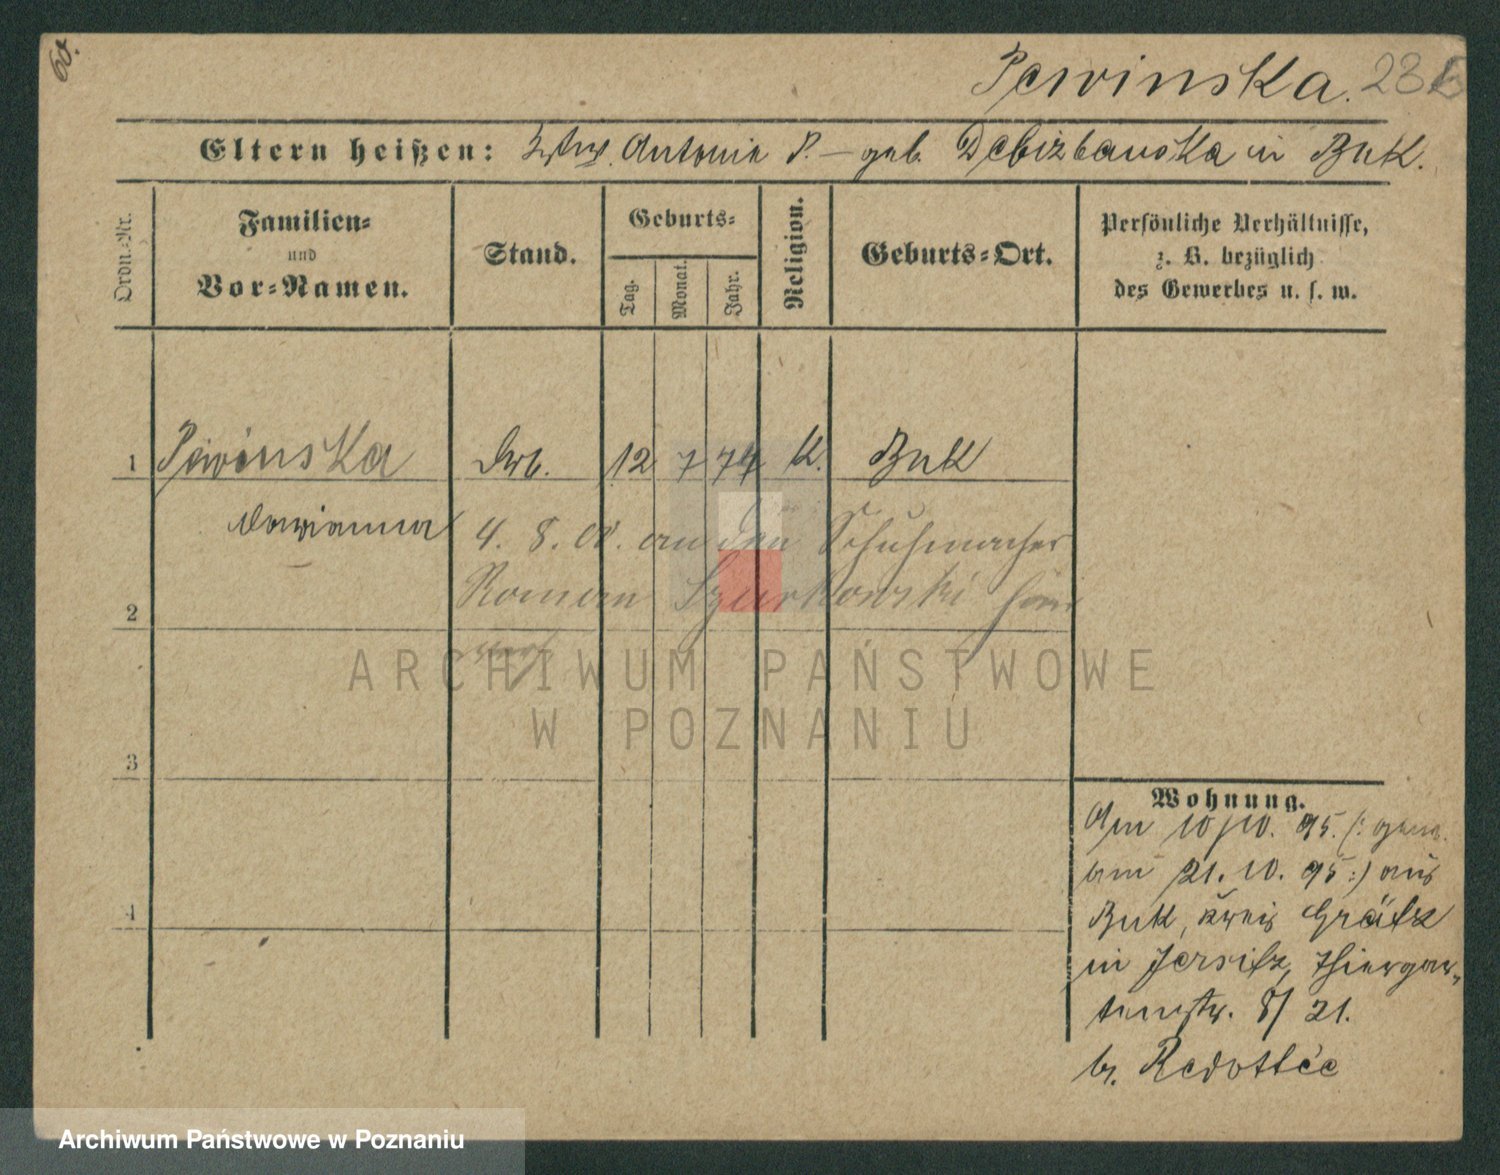 60.
Pewinska. 28
Eltern heißen: Antonie P. — geb. Debizbanska in Buk.
Ordn.-Nr.
Familien-
und
Vor-Namen.
Stand.
Geburts-
Tag.
Monat.
Jahr.
Religion.
Geburts-Ort.
Persönliche Verhältnisse,
z. B. bezüglich
des Gewerbes u. s. w.
1 Pewinska Arb. 12 7 74 K. Buk
Marianna 4. 8. 00. an den Schuhmacher
2 Roman Szurkowski hier
3
4
Wohnung.
Am 10/10. 95. (: gem.
am 21. 10. 95 :) aus
Buk, Kreis Grätz
in Jersitz, Thiergar-
tenstr. 8/ 21.
b.
ARCHIWUM PAŃSTWOWE
W POZNANIU
Archiwum Państwowe w Poznaniu